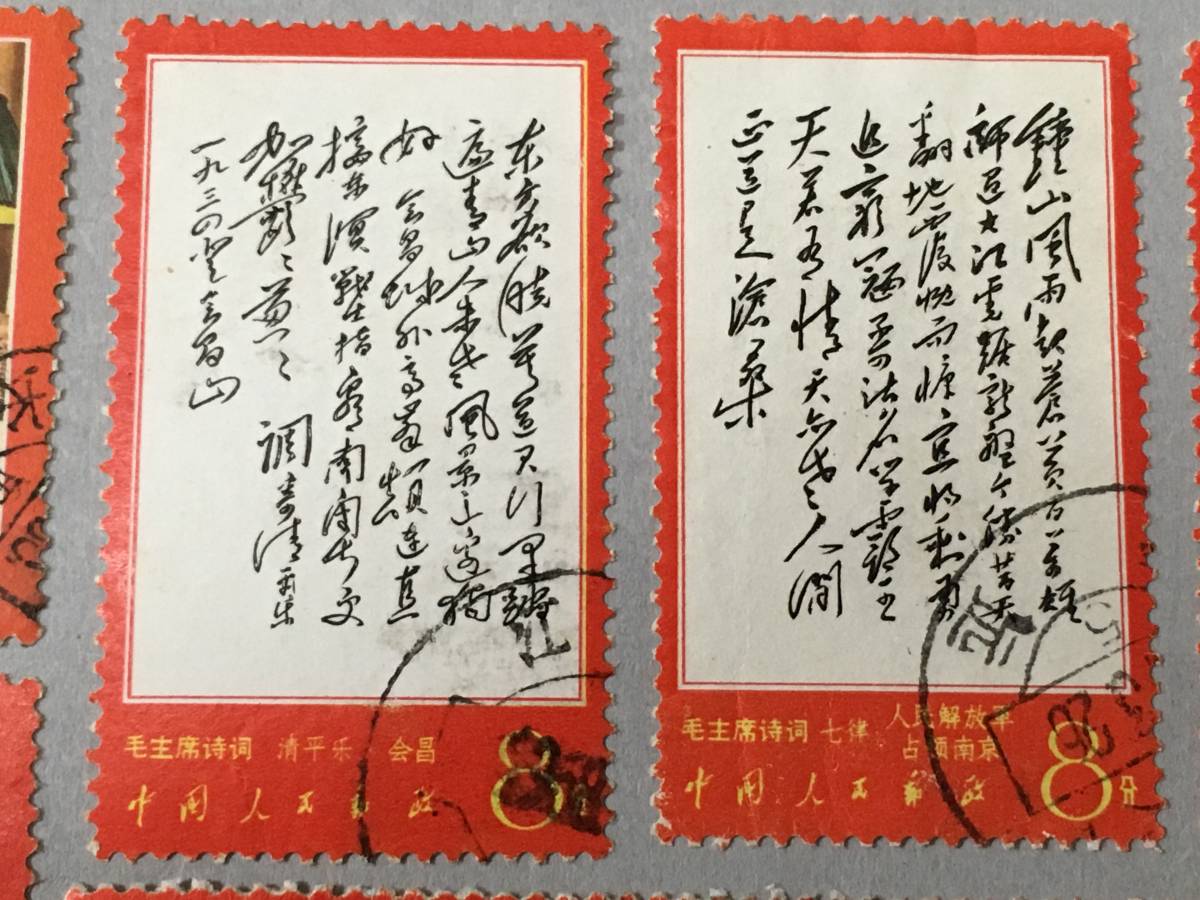 东方欲晓莫道君行早踏
遍青山人未老風景这边独
好 会昌城外高峯顛連直
接东溟戰士指看南粤更
加欝々葱々 調寄清平乐
一九三四登会昌山
毛主席诗词 清平乐 会昌
中国人民邮政
8分
鐘山風雨起蒼黄百万雄
師过大江虎踞龍盤今勝昔天
翻地覆慨而慷宜将剩勇
追窮寇不可沽名学霸王
天若有情天亦老人間
正道是滄桑
毛主席诗词 七律 人民解放军
占领南京
中国人民邮政
8分